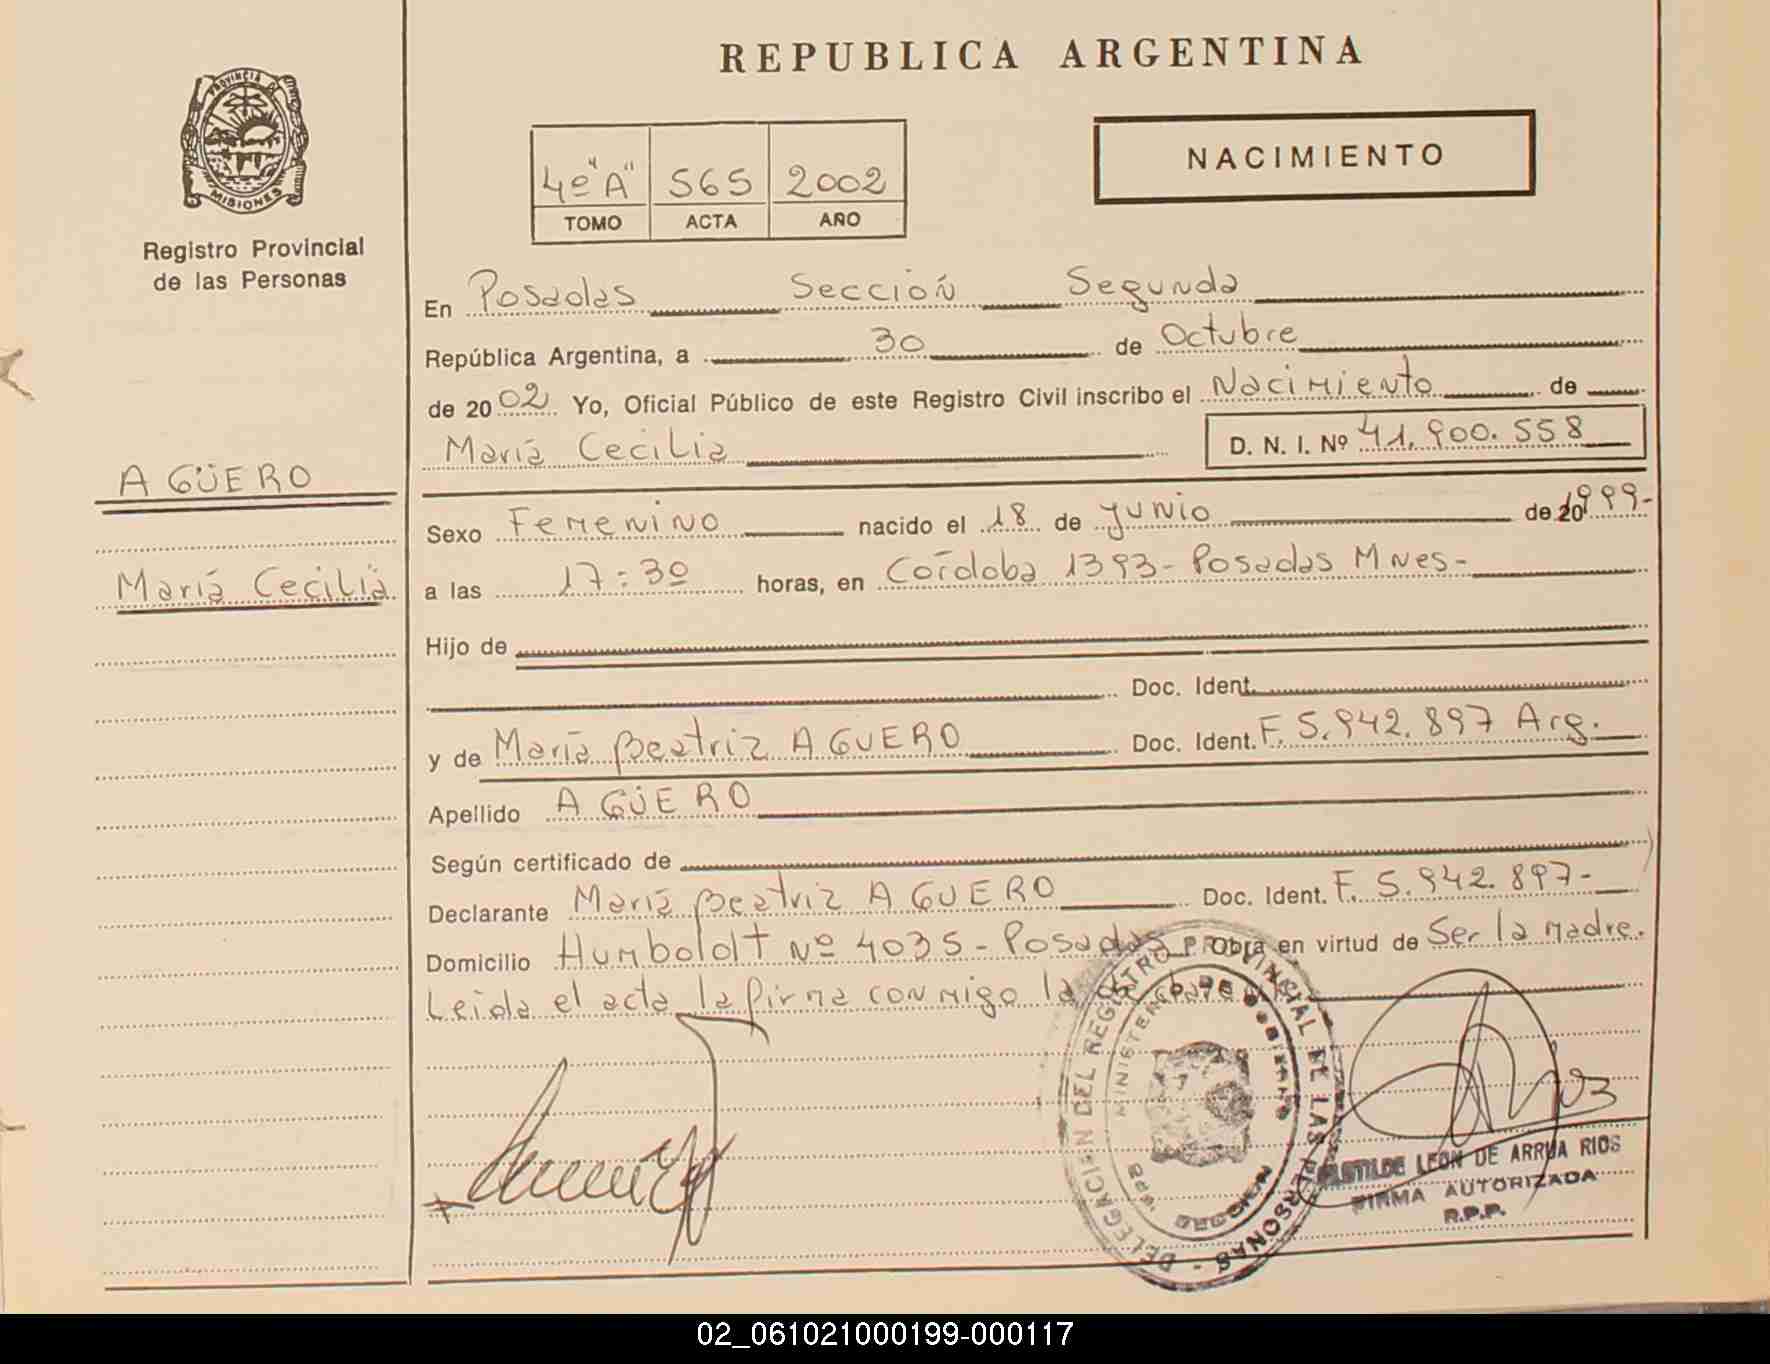 REPUBLICA ARGENTINA
PROVINCIA DE
MISIONES
Registro Provincial
de las Personas
4º "A" 565 2002
TOMO ACTA AÑO
NACIMIENTO
En Posadas Sección Segunda
República Argentina, a 30 de Octubre
de 2002 Yo, Oficial Público de este Registro Civil inscribo el Nacimiento de
María Cecilia D. N. I. Nº 41.900.558
AGÜERO
Sexo Femenino nacido el 18 de Junio de 20 1999-
María Cecilia
a las 17:30 horas, en Córdoba 1393- Posadas Mnes-
Hijo de
Doc. Ident.
y de María Beatriz AGUERO Doc. Ident. F. 5.942.897 Arg.
Apellido AGÜERO
Según certificado de
Declarante María Beatriz AGUERO Doc. Ident. F. 5.942.897-
Domicilio Humboldt Nº 4035- Posadas Obra en virtud de Ser la madre.
Leída el acta la firma conmigo la
DELEGACION DEL REGISTRO PROVINCIAL DE LAS PERSONAS -
MINISTERIO DE GOBIERNO
LEON DE ARRUA RIOS
FIRMA AUTORIZADA
R.P.P.
02_061021000199-000117